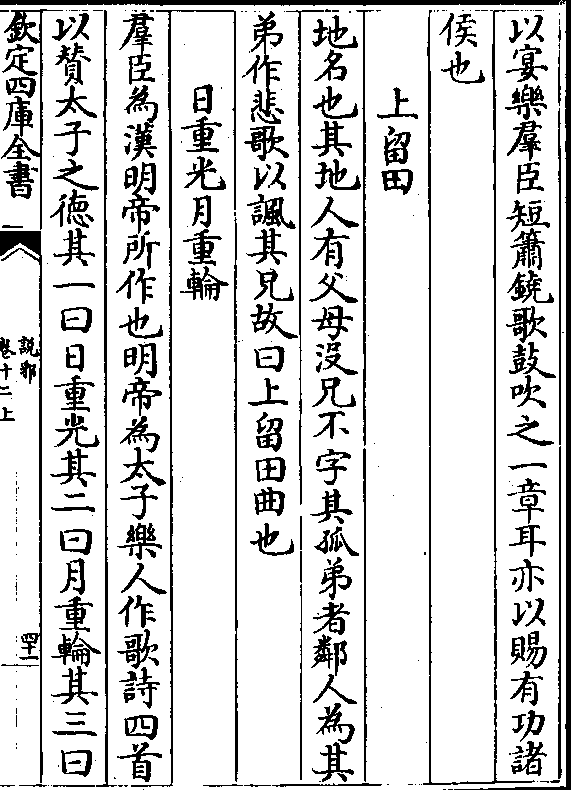 以宴樂羣臣短簫鐃歌鼓吹之一章耳亦以賜有功諸
侯也
上留田
地名也其地人有父母沒兄不字其孤弟者鄰人為其
弟作悲歌以諷其兄故曰上留田曲也
日重光月重輪
羣臣為漢明帝所作也明帝為太子樂人作歌詩四首
以賛太子之德其一曰日重光其二曰月重輪其三曰
欽定四庫全書
說郛
卷十二上
四十一